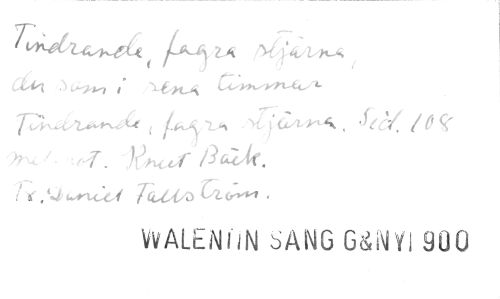 Tindrande, fagra stjärna,
du som i sena timmar
Tindrande, fagra stjärna. Sid. 108
mel. not. Knut Bäck.
Tx. Daniel Fallström.
WALENTIN SANG G&NYI 900